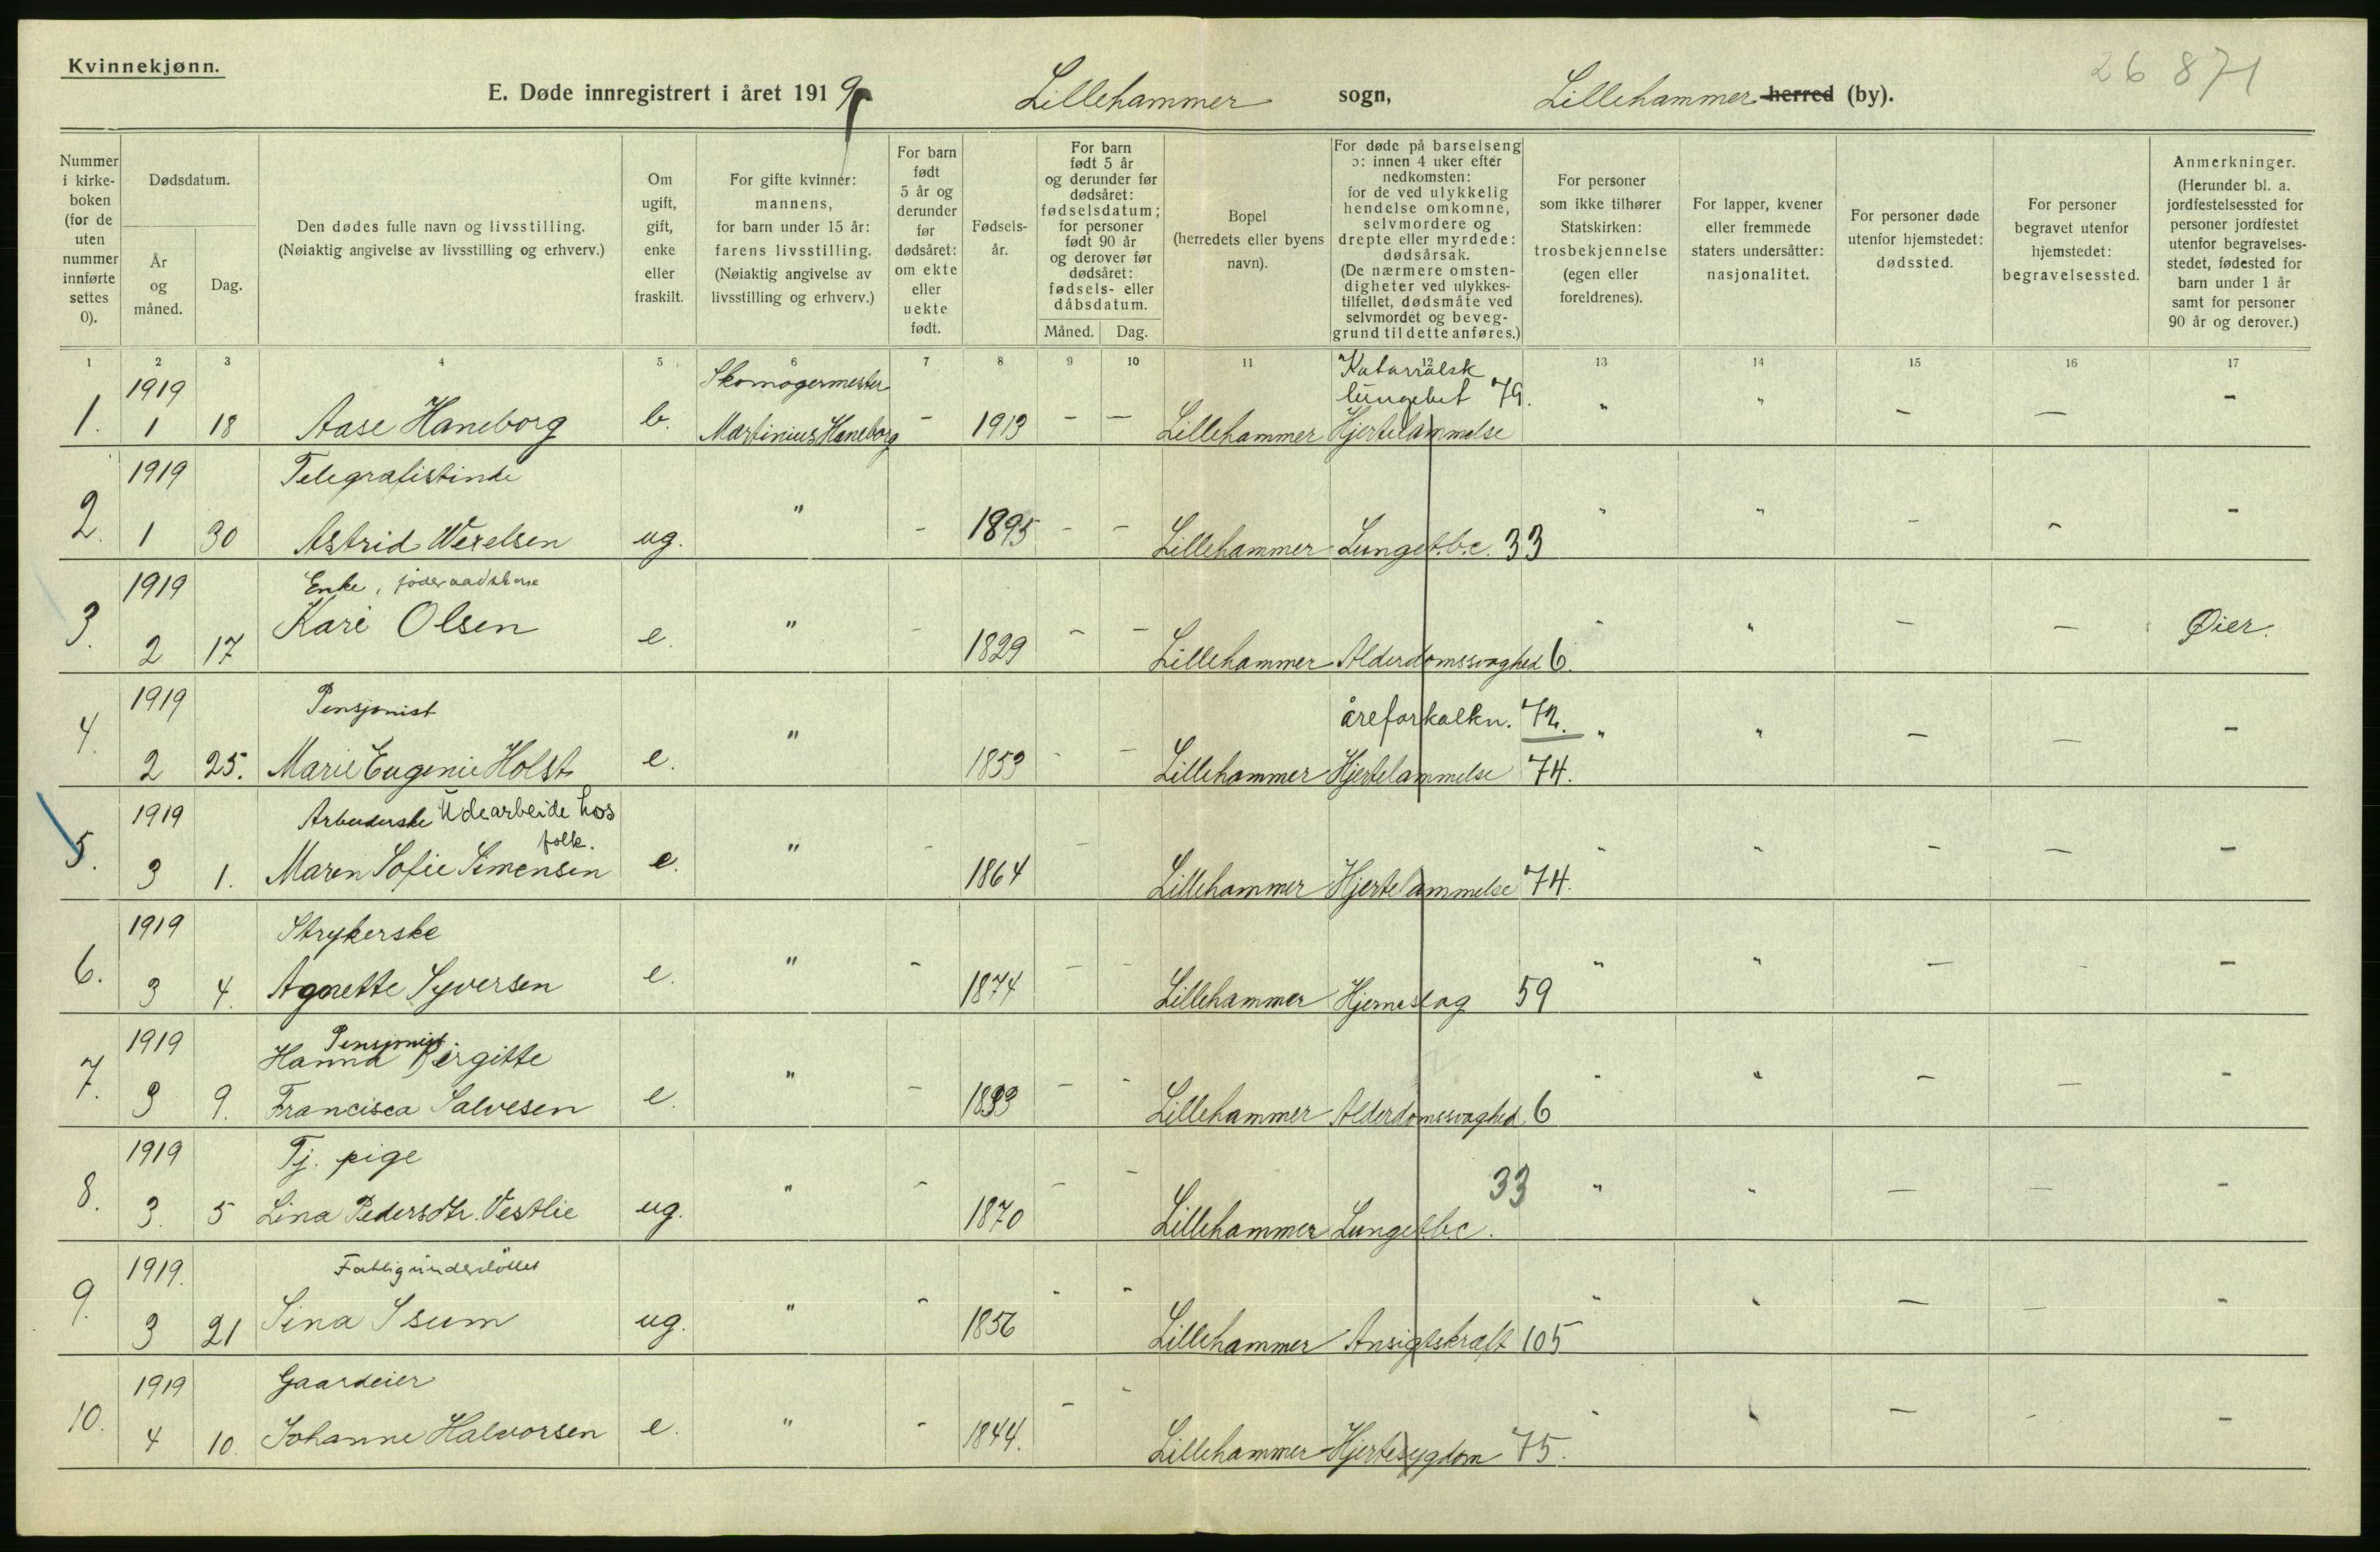 Kvinnekjønn.
26 871
E. Døde innregistrert i året 1919 Lillehammer sogn, Lillehammer herred (by).
Nummer i kirkeboken (for de uten nummer innførte settes 0).
Dødsdatum.
År og måned.
Dag.
Den dødes fulle navn og livsstilling.
(Nøiaktig angivelse av livsstilling og erhverv.)
Om ugift, gift, enke eller fraskilt.
For gifte kvinner: mannens, for barn under 15 år: farens livsstilling.
(Nøiaktig angivelse av livsstilling og erhverv.)
For barn født 5 år og derunder før dødsåret: om ekte eller uekte født.
Fødselsår.
For barn født 5 år og derunder før dødsåret: fødselsdatum; for personer født 90 år og derover før dødsåret: fødsels- eller dåbsdatum.
Måned. Dag.
Bopel (herredets eller byens navn).
For døde på barselseng ɔ: innen 4 uker efter nedkomsten: for de ved ulykkelig hendelse omkomne, selvmordere og drepte eller myrdede: dødsårsak.
(De nærmere omstendigheter ved ulykkestilfellet, dødsmåte ved selvmordet og beveggrund til dette anføres.)
For personer som ikke tilhører Statskirken: trosbekjennelse (egen eller foreldrenes).
For lapper, kvener eller fremmede staters undersåtter: nasjonalitet.
For personer døde utenfor hjemstedet: dødssted.
For personer begravet utenfor hjemstedet: begravelsessted.
Anmerkninger.
(Herunder bl. a. jordfestelsessted for personer jordfestet utenfor begravelsesstedet, fødested for barn under 1 år samt for personer 90 år og derover.)
1 2 3 4 5 6 7 8 9 10 11 12 13 14 15 16 17
1919 Skomagermester Katarralsk
lungebet 79.
1. 1 18 Aase Haneborg b. Martinius Haneborg - 1913 - - Lillehammer Hjertelammelse " " - - -
1919 Telegrafistinde
2. 1 30 Astrid Wexelsen ug. " - 1895 - - Lillehammer Lungetbc. 33 " " - - -
1919 Enke, føderaadskone
3. 2 17 Kari Olsen e. " - 1829 - - Lillehammer Alderdomssvaghed 6. " " - - Øier.
1919 Pensjonist åreforkalkn. 72.
4. 2 25. Marie Eugenie Holst e. " 1853 - - Lillehammer Hjertelammelse 74. " " - - -
1919 Arbeiderske Utearbeide hos
folk.
5. 3 1. Maren Sofie Simensen e. " - 1864 - Lillehammer Hjertelammelse 74. " " - - -
1919 Strykerske
6. 3 4. Agnette Syversen e. " - 1874 - - Lillehammer Hjerneslag 59 " " - - -
1919 Pensjonist
Hanna Birgitte
7. 3 9. Francisca Salvesen e. " - 1833 - - Lillehammer Alderdomssvaghed 6 " " - - -
1919 Tj. pige
8. 3. 5 Lina Pedersdtr. Vestlie ug. " - 1870 - - Lillehammer Lungetbc. 33 " " - - -
1919. Fattigunderstöttet
9. 3 21 Sina Isum ug. " - 1856 - - Lillehammer Ansigtskræft 105 " " - - -
1919 Gaardeier
10. 4 10. Johanne Halvorsen e. " - 1844. - - Lillehammer Hjertesygdom 75. " " - - -